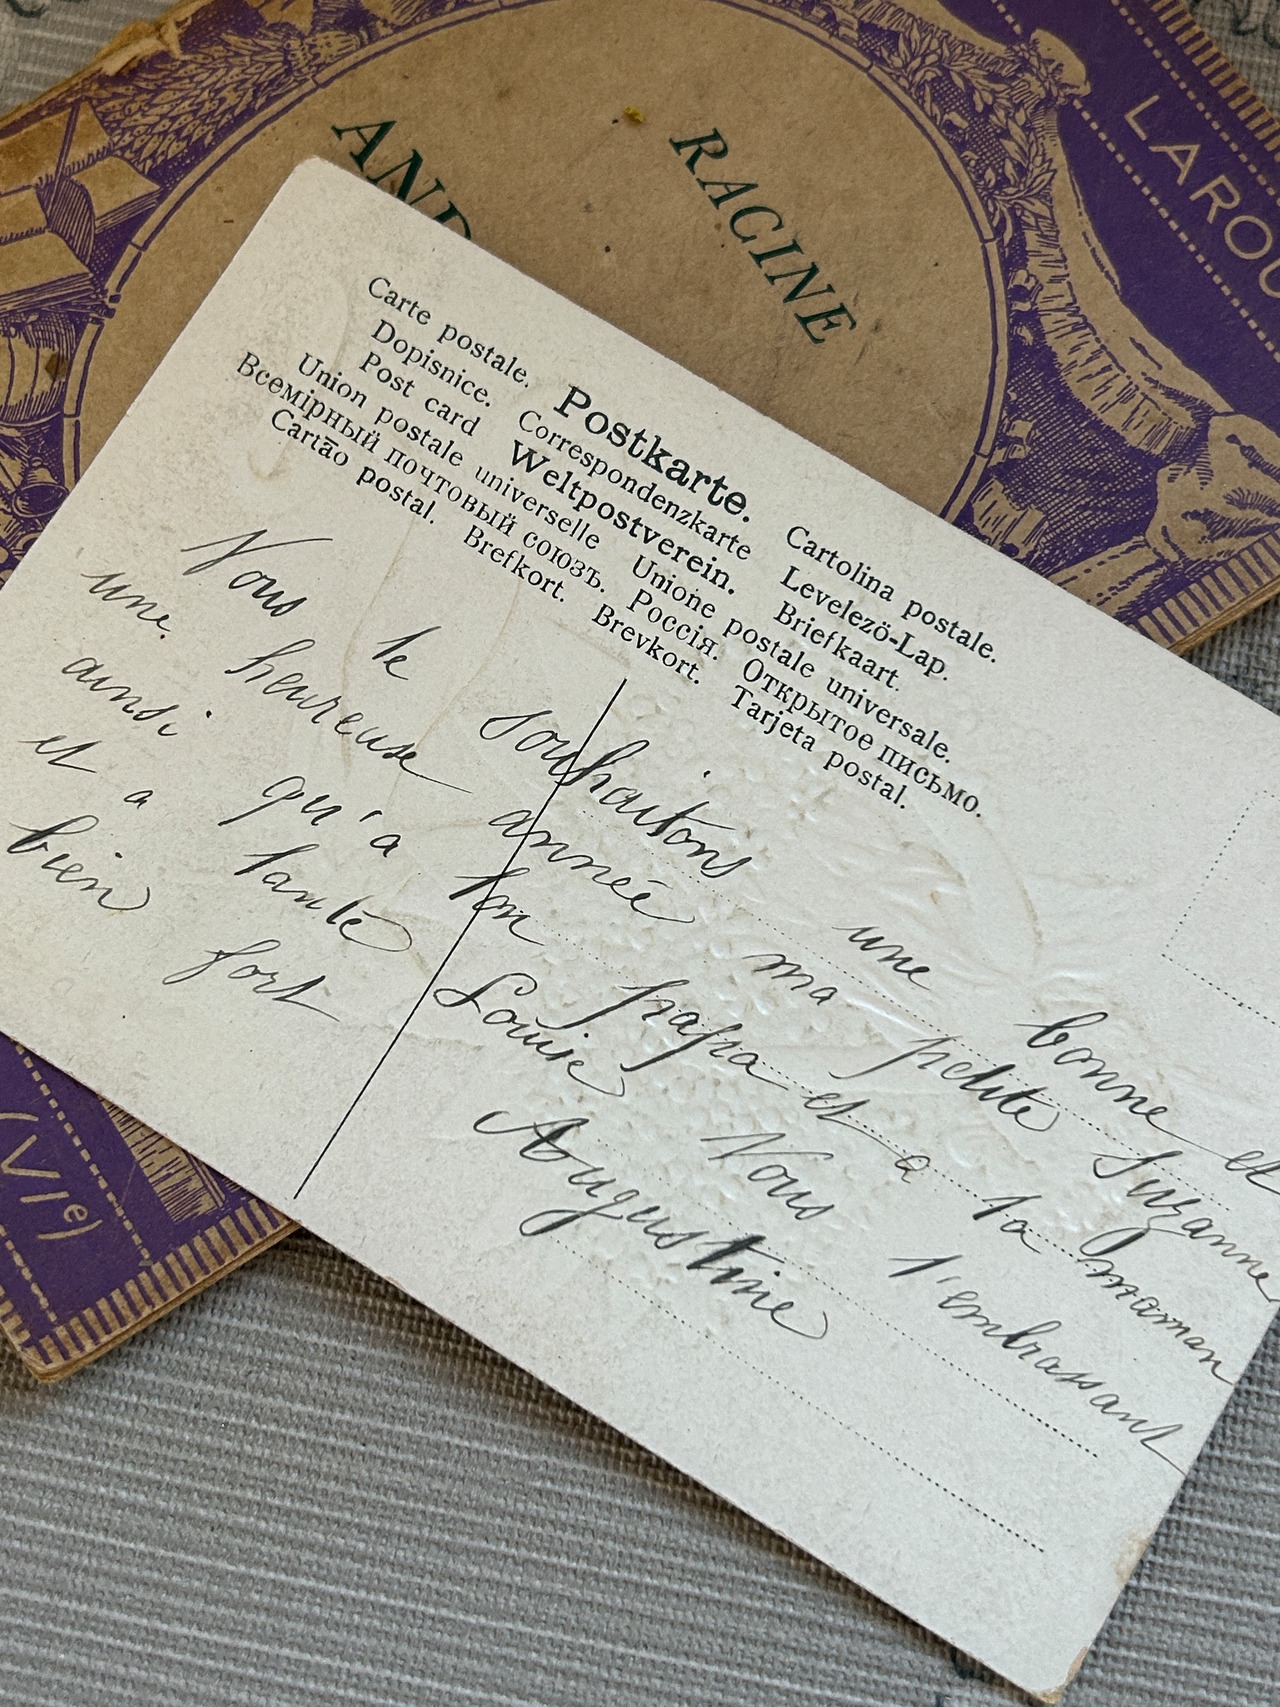 RACINE
AND
LAROU
(VIᵉ)
Carte postale. Postkarte. Cartolina postale.
Dopisnice. Correspondenzkarte Levelezö-Lap.
Post card Weltpostverein. Briefkaart.
Union postale universelle Unione postale universale.
Всемірный почтовый союзъ. Россія. Открытое письмо.
Cartāo postal. Brefkort. Brevkort. Tarjeta postal.
Nous te souhaitons une bonne et
une heureuse année ma petite Suzanne
ainsi qu'a ton papa et a ta maman
et a tante Louise Nous t'embrassant
bien fort Augustine